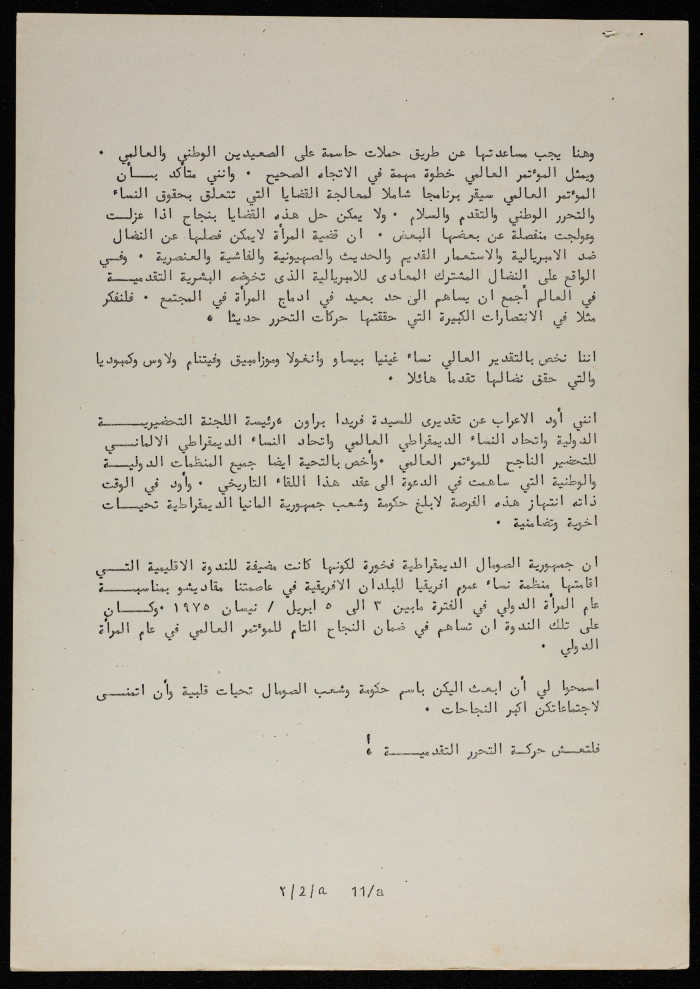 وهنا يجب مساعدتها عن طريق حملات حاسمة على الصعيدين الوطني والعالمي .
ويمثل المؤتمر العالمي خطوة مهمة في الاتجاه الصحيح . وانني متأكد بــأن
المؤتمر العالمي سيقر برنامجا شاملا لمعالجة القضايا التي تتعلق بحقوق النساء
والتحرر الوطني والتقدم والسلام . ولا يمكن حل هذه القضايا بنجاح اذا عزلــت
وعولجت منفصلة عن بعضها البعض . ان قضية المرأة لايمكن فصلها عن النضال
ضد الامبريالية والاستعمار القديم والحديث والصهيونية والفاشية والعنصرية . وفــي
الواقع على النضال المشترك المعادى للامبريالية الذى تخوضه البشرية التقدميـــة
في العالم أجمع ان يساهم الى حد بعيد في ادماج المرأة في المجتمع . فلنفكر
مثلا في الانتصارات الكبيرة التي حققتها حركات التحرر حديثا ،
اننا نخص بالتقدير العالي نساء غينيا بيساو وانغولا وموزامبيق وفيتنام ولاوس وكمبوديا
والتي حقق نضالها تقدما هائلا .
انني أود الاعراب عن تقديرى للسيدة فريدا براون ،رئيسة اللجنة التحضيريــــة
الدولية واتحاد النساء الديمقراطي العالمي واتحاد النساء الديمقراطي الالمانـــي
للتحضير الناجح للموءتمر العالمي .وأخص بالتحية ايضا جميع المنظمات الدوليـــة
والوطنية التي ساهمت في الدعوة الى عقد هذا اللقاء التاريخي . وأود في الوقت
ذاته انتهاز هذه الفرصة لابلغ حكومة وشعب جمهورية المانيا الديمقراطية تحيـــات
اخوية وتضامنية .
ان جمهورية الصومال الديمقراطية فخورة لكونها كانت مضيفة للندوة الاقليمية التــي
اقامتها منظمة نساء عموم افريقيا للبلدان الافريقية في عاصمتنا مقاديشو بمناسبـــة
عام المرأة الدولي في الفترة مابين ٣ الى ٥ ابريل / نيسان ١٩٧٥ .وكـــان
على تلك الندوة ان تساهم في ضمان النجاح التام للموءتمر العالمي في عام المرأة
الدولي .
اسمحوا لي أن ابعث اليكن باسم حكومة وشعب الصومال تحيات قلبية وأن اتمنــى
لاجتماعاتكن اكبر النجاحات .
فلتعش حركة التحرر التقدميـــة !
٢/2/a 11/a